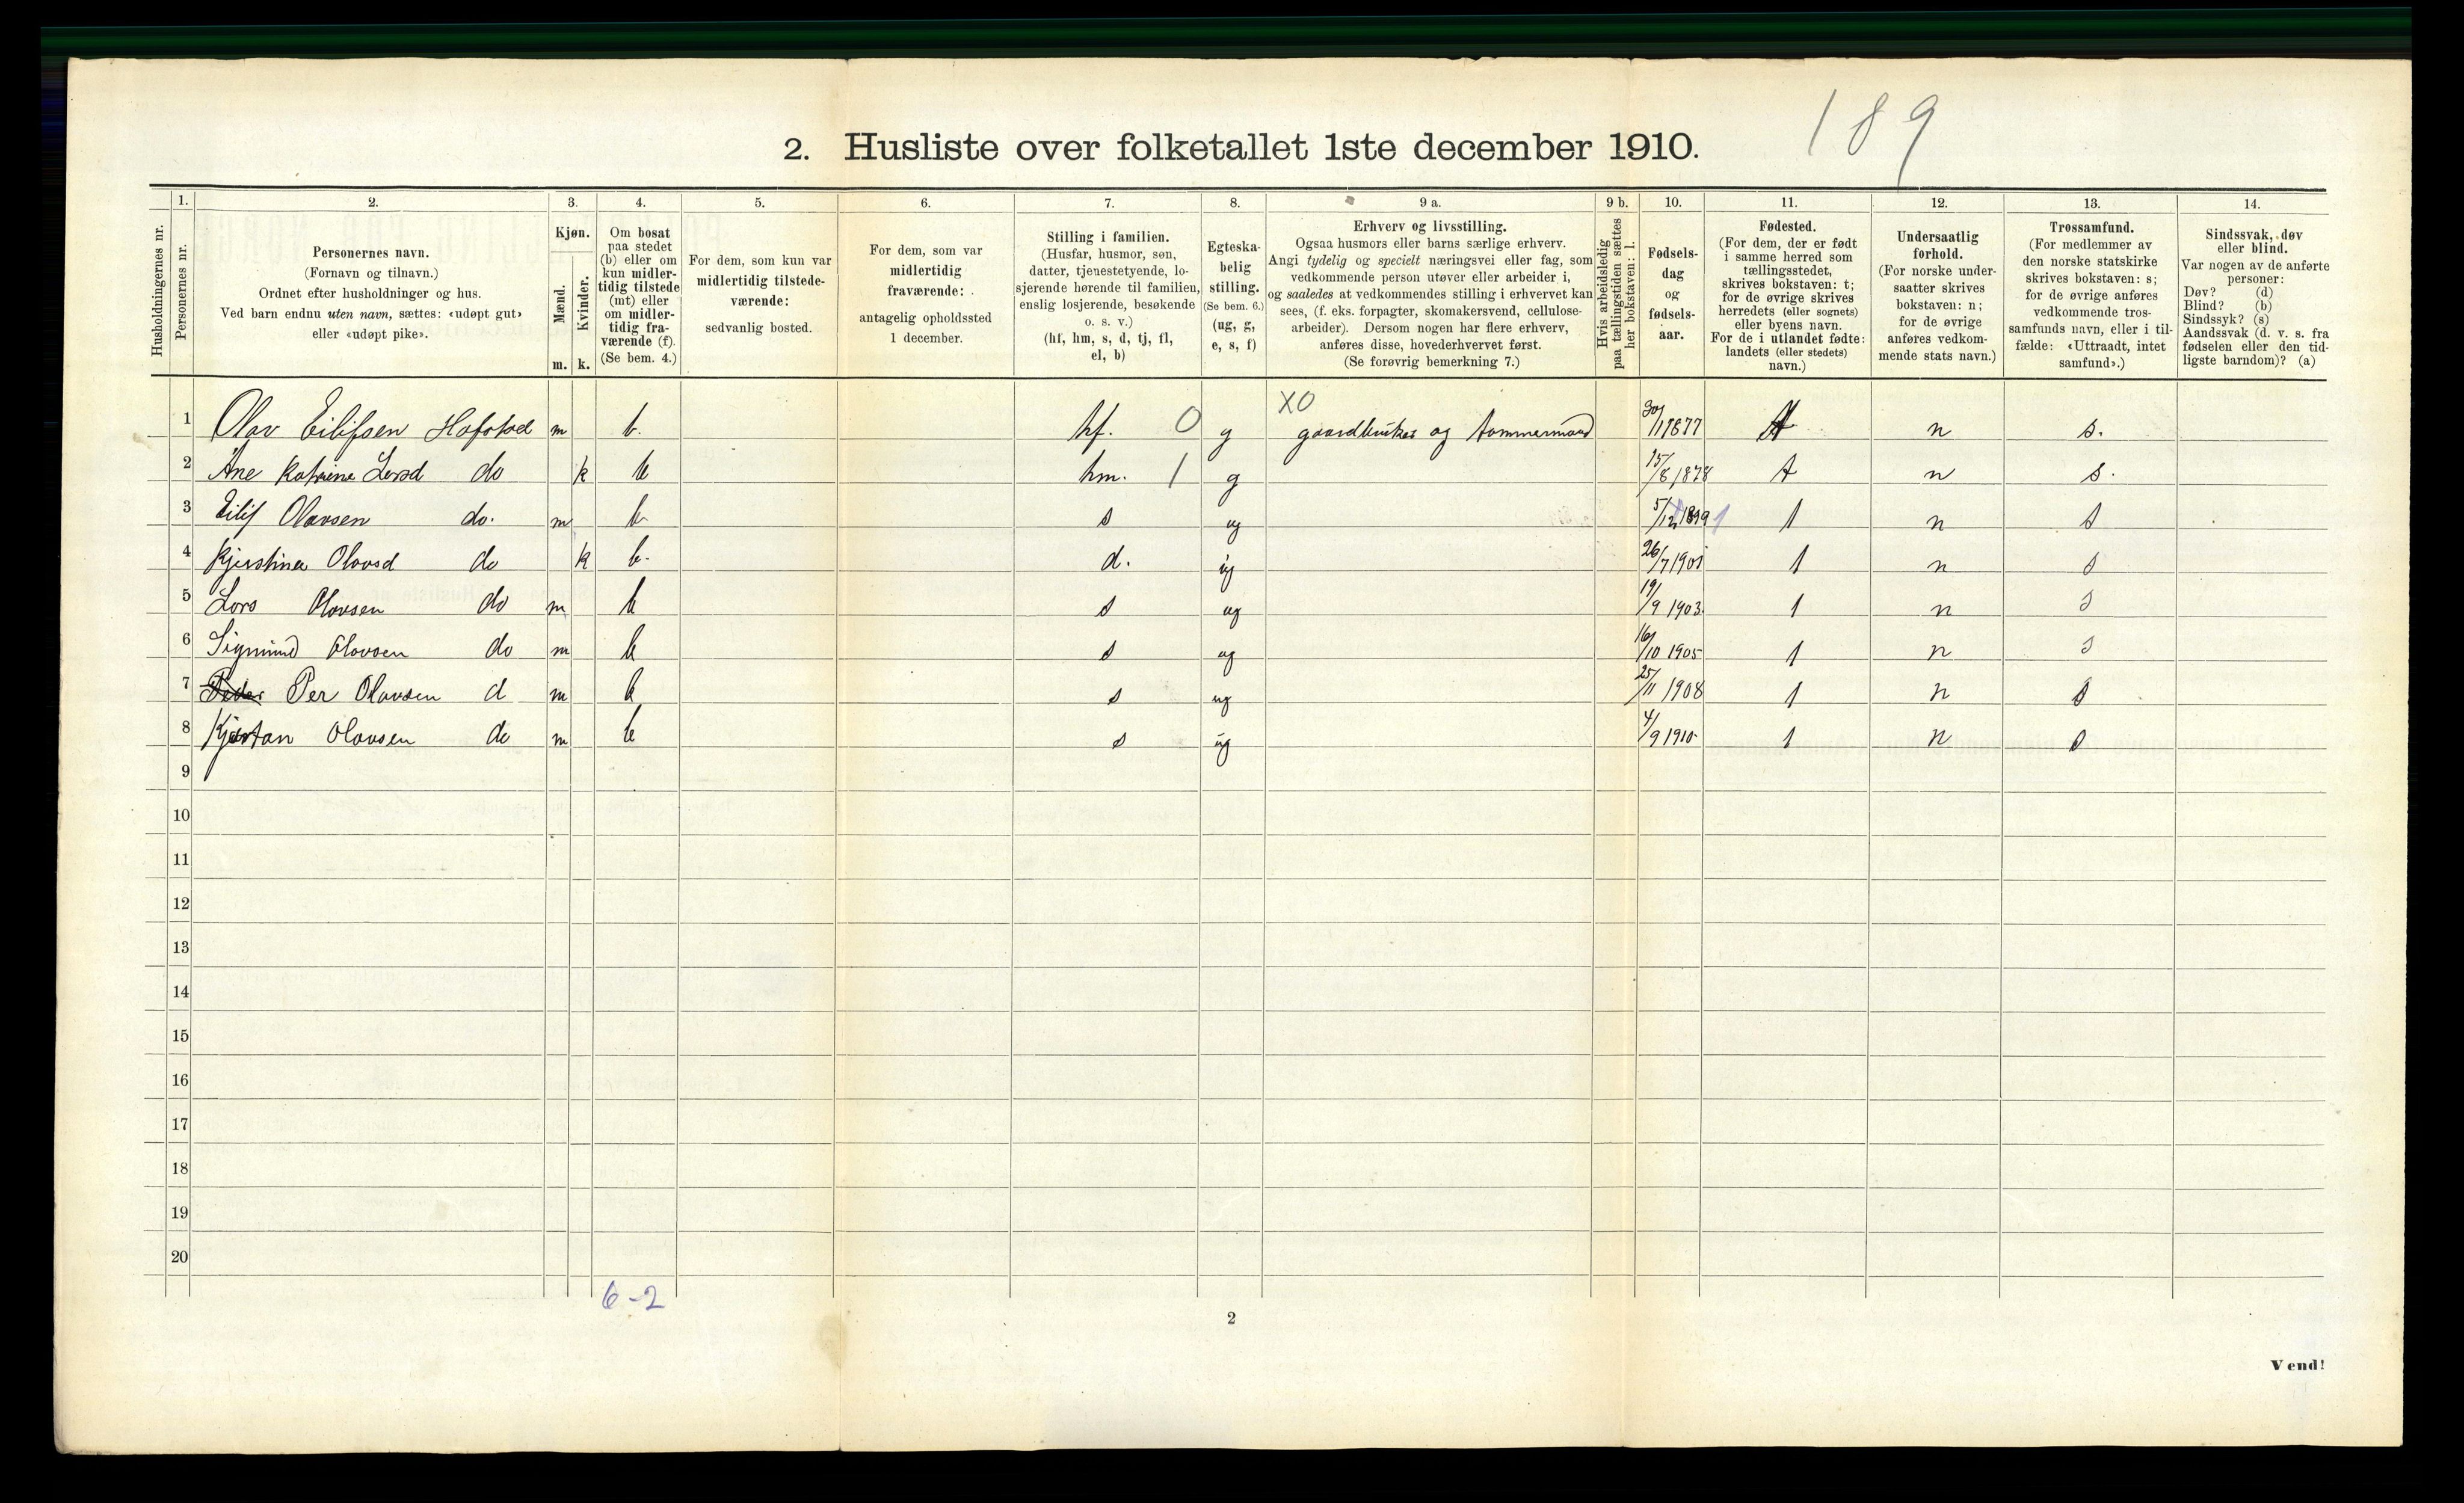 189
2. Husliste over folketallet 1ste december 1910.
Husholdningernes nr.
1. Personernes nr.
2. Personernes navn.
(Fornavn og tilnavn.)
Ordnet efter husholdninger og hus.
Ved barn endnu uten navn, sættes: «udøpt gut»
eller «udøpt pike».
3. Kjøn.
Mænd. m.
Kvinder. k.
4. Om bosat
paa stedet
(b) eller om
kun midler-
tidig tilstede
(mt) eller
om midler-
tidig fra-
værende (f).
(Se bem. 4.)
5. For dem, som kun var
midlertidig tilstede-
værende:
sedvanlig bosted.
6. For dem, som var
midlertidig
fraværende:
antagelig opholdssted
1 december.
7. Stilling i familien.
(Husfar, husmor, søn,
datter, tjenestetyende, lo-
sjerende hørende til familien,
enslig losjerende, besøkende
o. s. v.)
(hf, hm, s, d, tj, fl,
el, b)
8. Egteska-
belig
stilling.
(Se bem. 6.)
(ug, g,
e, s, f)
9 a. Erhverv og livsstilling.
Ogsaa husmors eller barns særlige erhverv.
Angi tydelig og specielt næringsvei eller fag, som
vedkommende person utøver eller arbeider i,
og saaledes at vedkommendes stilling i erhvervet kan
sees, (f. eks. forpagter, skomakersvend, cellulose-
arbeider). Dersom nogen har flere erhverv,
anføres disse, hovederhvervet først.
(Se forøvrig bemerkning 7.)
9 b. Hvis arbeidsledig
paa tællingstiden sættes
her bokstaven: l.
10. Fødsels-
dag
og
fødsels-
aar.
11. Fødested.
(For dem, der er født
i samme herred som
tællingsstedet,
skrives bokstaven: t;
for de øvrige skrives
herredets (eller sognets)
eller byens navn.
For de i utlandet fødte:
landets (eller stedets)
navn.)
12. Undersaatlig
forhold.
(For norske under-
saatter skrives
bokstaven: n;
for de øvrige
anføres vedkom-
mende stats navn.)
13. Trossamfund.
(For medlemmer av
den norske statskirke
skrives bokstaven: s;
for de øvrige anføres
vedkommende tros-
samfunds navn, eller i til-
fælde: «Uttraadt, intet
samfund».)
14. Sindssvak, døv
eller blind.
Var nogen av de anførte
personer:
Døv? (d)
Blind? (b)
Sindssyk? (s)
Aandssvak (d. v. s. fra
fødselen eller den tid-
ligste barndom)? (a)
XO
1 Olav Eilifsen Hofstad m b. hf. 0 g gaardbruker og tømmermand 30/1 1877 t n s.
2 Ane Katrine Larsd do k b hm. 1 g 15/8 1878 t n s.
3 Eilif Olavsen do. m b s ug 5/12 1899 1 t n s
4 Kjerstina Olavsd do k b. d. ug 26/7 1901 t n s
5 Lars Olavsen do m b s ug 19/9 1903 t n s
6 Sigmund Olavsen do m b s ug 16/10 1905 t n s
7 Peder Per Olavsen d m b s ug 25/11 1908 t n s
8 Kjartan Olavsen do m b s ug 4/9 1910 t n s
9
10
11
12
13
14
15
16
17
18
19
20
6-2
2
Vend!